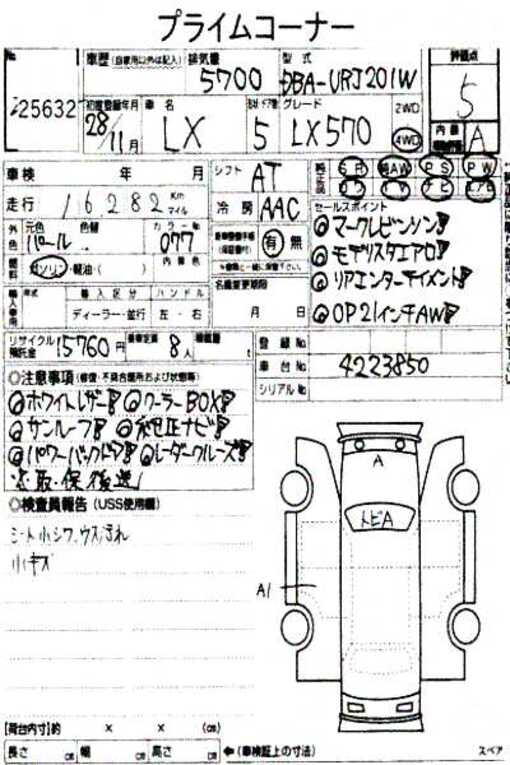 プライムコーナー
No 車歴(自家用以外は記入) 排気量 型式 評価点
25632 5700 DBA-URJ201W 5
初度登録年月 車名 ドア数 グレード 2WD 内装
28/11月 LX 5 LX570 4WD A
車検 年 月 シフト AT 純正品 SR AW PS PW
走行 16282 Km マイル 冷房 AAC セールスポイント
外色 元色 色替 カラーNo マークレビンソン
パール 077 有 無 モデリスタエアロ
燃料 ガソリン・軽油・( ) 内装色 リアエンターテイメント
輸入車用 年式 輸入区分 ハンドル 名義変更期限 OP21インチAW
ディーラー・並行 左・右 月 日
リサイクル預託金 15760円 乗車定員 8人 積載量 t 登録No
車台No 4223850
シリアルNo
◎注意事項(修復・不具合箇所および状態等)
ホワイトレザー クーラーBOX
サンルーフ 純正ナビ
パワーバックドア レーダークルーズ
取・保後送
◎検査員報告(USS使用欄)
シート小シワ、ウス汚れ
小キズ
A
トビA
A1
[荷台内寸]約 × × (cm)
長さ cm 幅 cm 高さ cm ←(車検証上の寸法) スペア